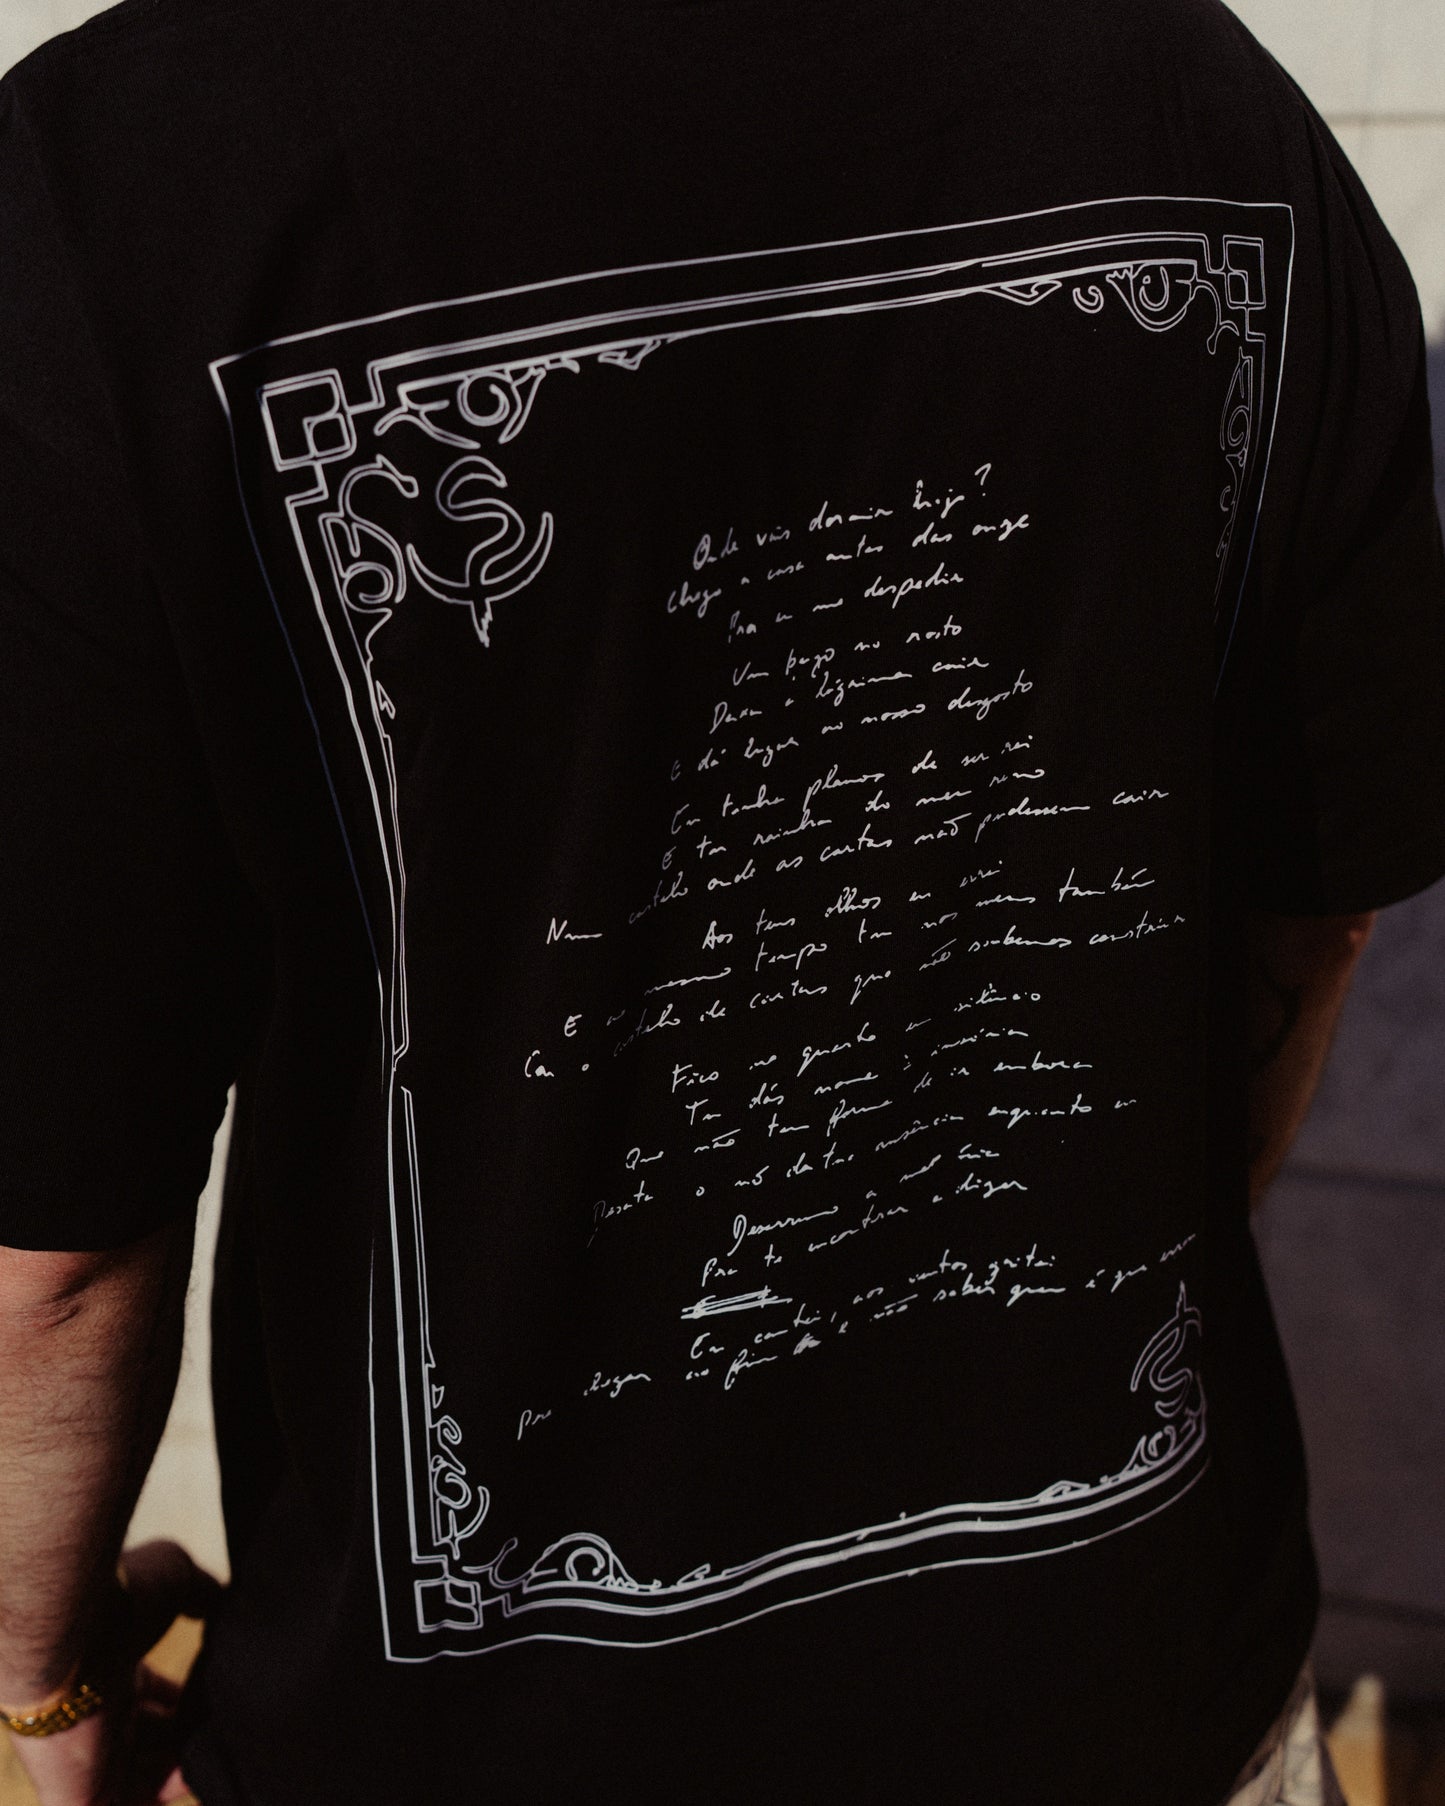 Onde vais dormir hoje?
Chego a casa antes das onze
Pra eu me despedir
Um beijo no rosto
Deixa a lágrima cair
E dá lugar ao nosso desgosto
Eu tinha planos de ser rei
E tu rainha do meu reino
Num castelo onde as cartas não pudessem cair
Aos teus olhos eu errei
E ao mesmo tempo tu nos meus também
Caiu o castelo de cartas que não soubemos construir
Fico no quarto em silêncio
Tu dás nome à insónia
Que não tem forma de ir embora
Desata o nó da tua ausência enquanto eu
Desarrumo a
Pra te encontrar a
Eu cantei, aos ventos gritei
Pra chegar ao fim e não saber quem é que